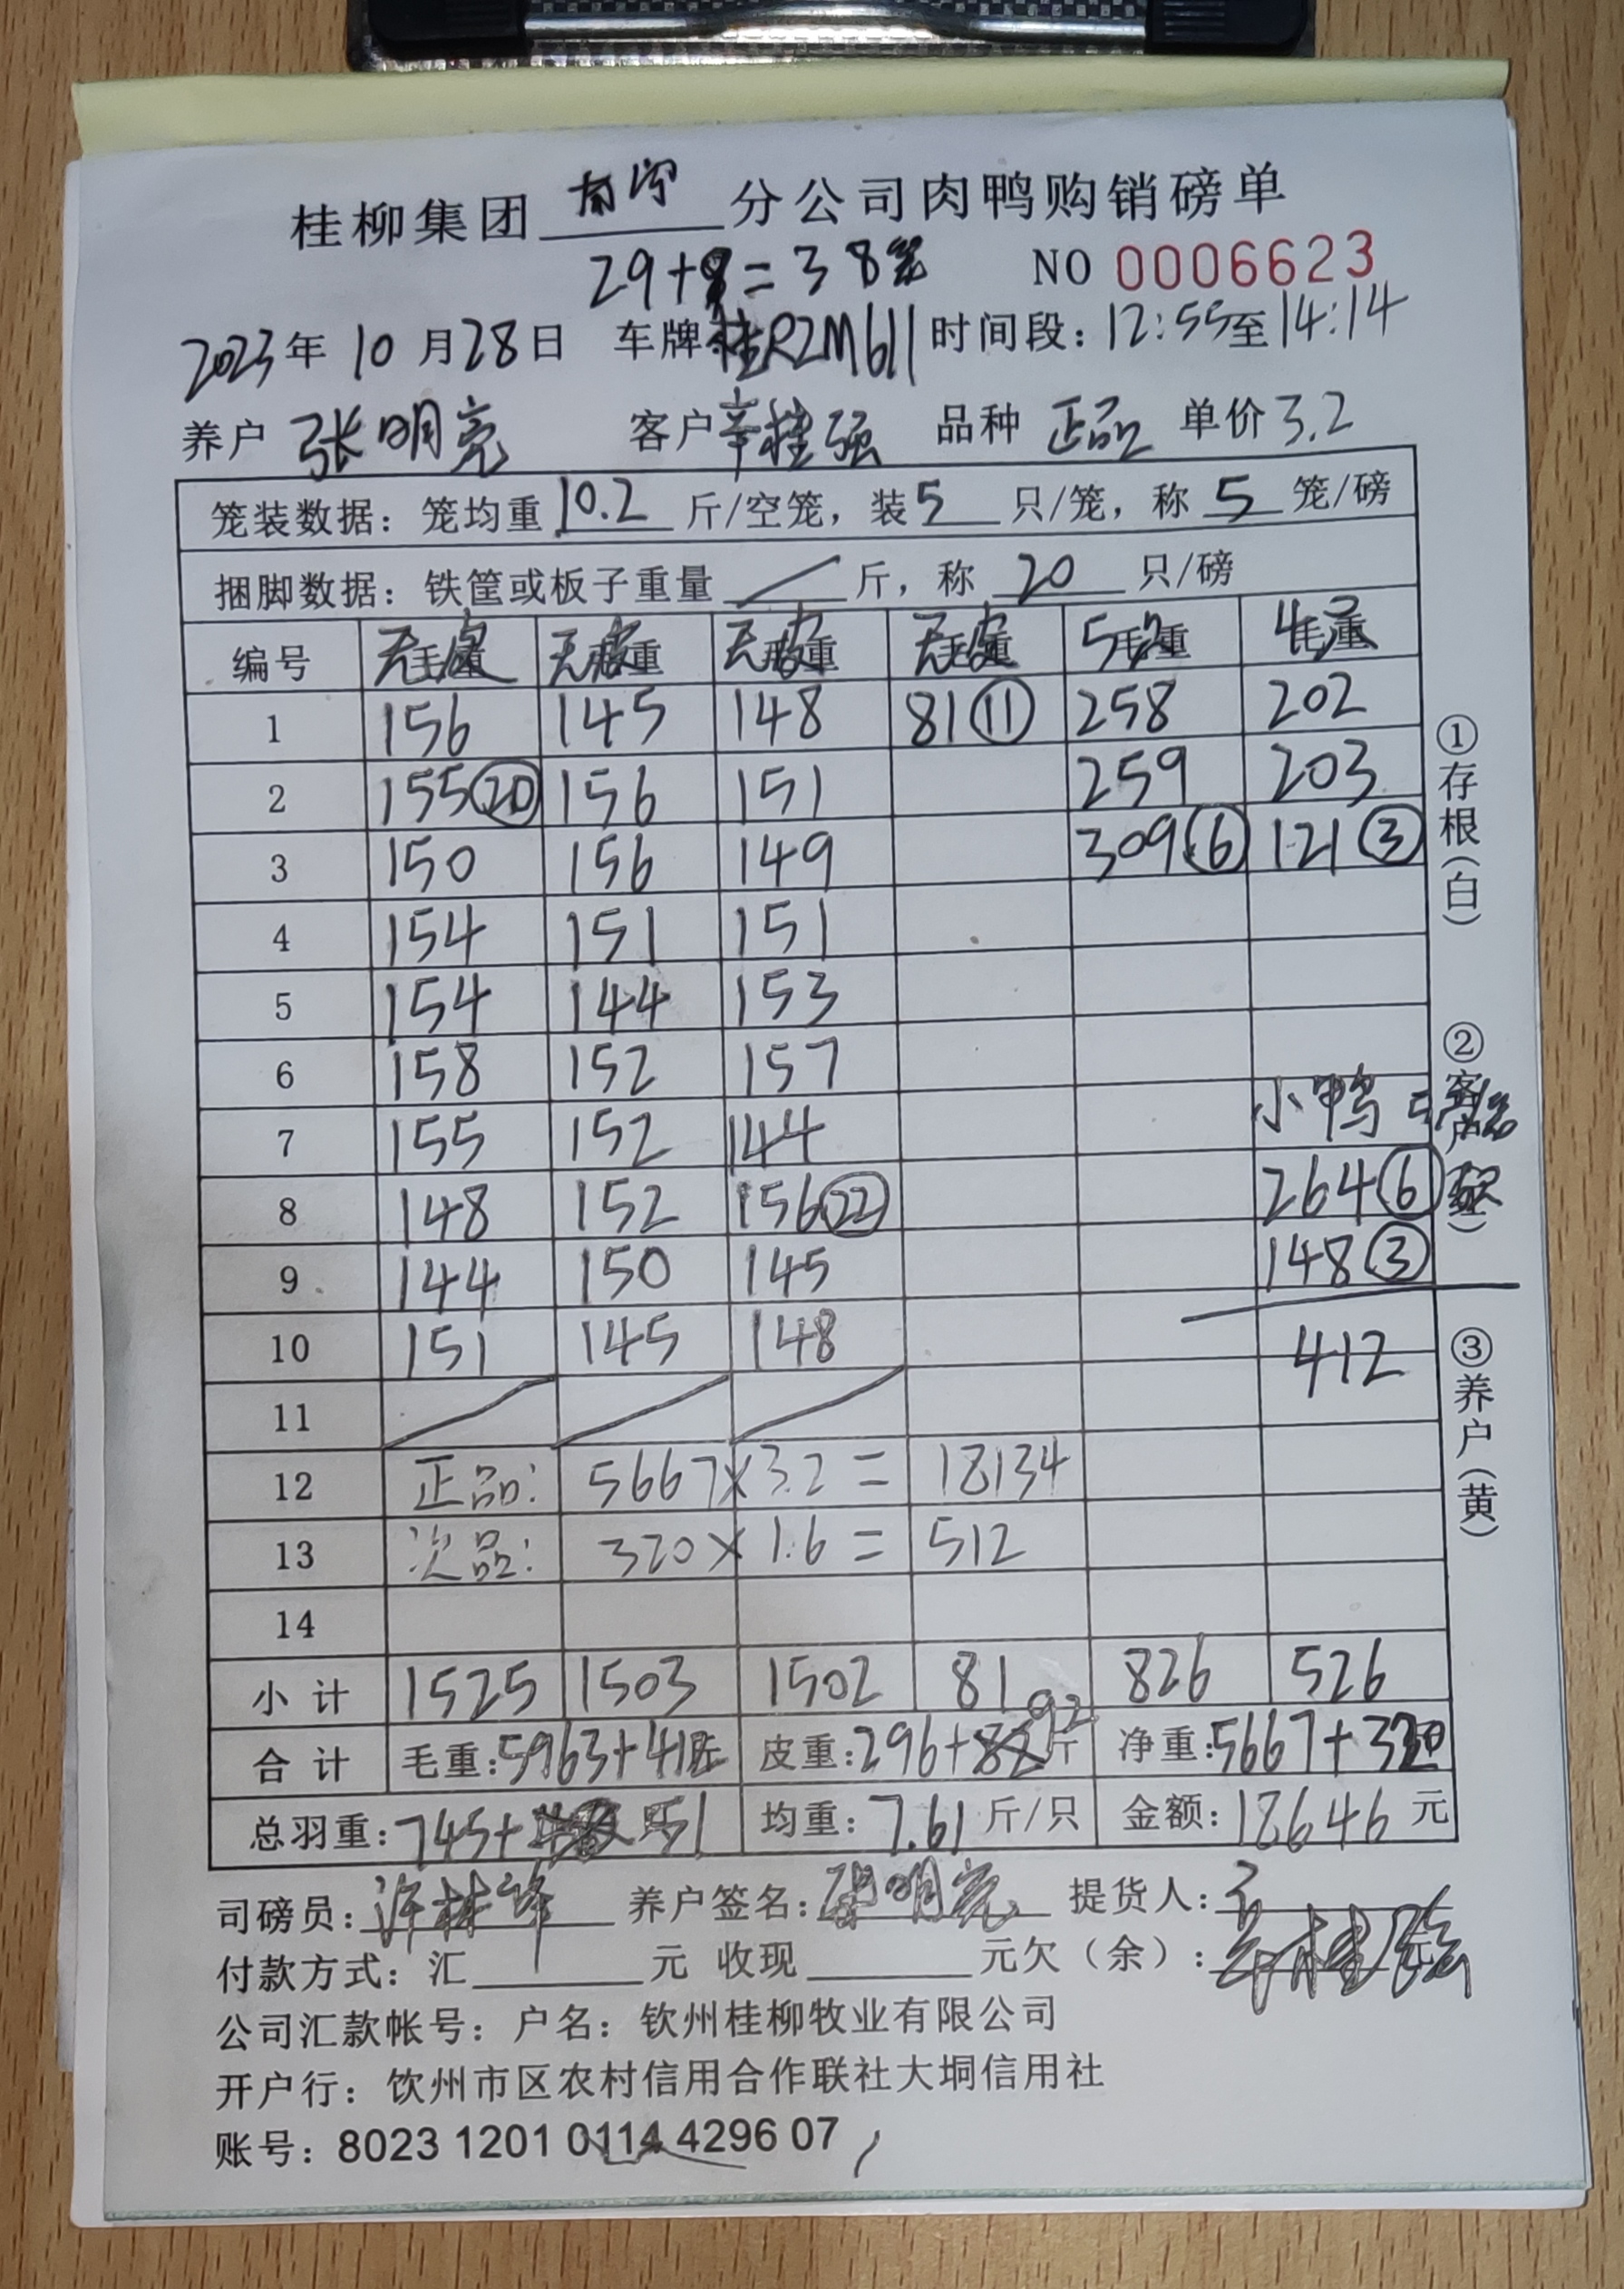 桂柳集团 南宁 分公司肉鸭购销磅单
29+9=38笼 NO 0006623
2023年 10 月28日 车牌桂R2M611 时间段：12:55至14:14
养户 张明亮 客户 辛桂强 品种 正品 单价 3.2
笼装数据：笼均重 10.2 斤/空笼，装 5 只/笼，称 5 笼/磅
捆脚数据：铁筐或板子重量 / 斤，称 20 只/磅
编号 无皮 无皮 无皮 无皮 5笼 4笼
1 156 145 148 81⑪ 258 202
2 155⑳ 156 151 259 203
3 150 156 149 309⑥ 121③
4 154 151 151
5 154 144 153
6 158 152 157
7 155 152 144 小鸭
8 148 152 156㉒ 264⑥
9 144 150 145 148③
10 151 145 148 412
11
12 正品： 5667×3.2= 18134
13 次品： 320×1.6= 512
14
小计 1525 1503 1502 81 826 526
合计 毛重:5963+412斤 皮重:296+92斤 净重:5667+320
总羽重:745+51 均重：7.61 斤/只 金额:18646 元
司磅员： 养户签名：张明亮 提货人：辛桂强
付款方式：汇 元 收现 元欠（余）： 元
公司汇款帐号：户名：钦州桂柳牧业有限公司
开户行：饮州市区农村信用合作联社大垌信用社
账号：8023 1201 0114 4296 07
①存根（白）
②客户（红）
③养户（黄）